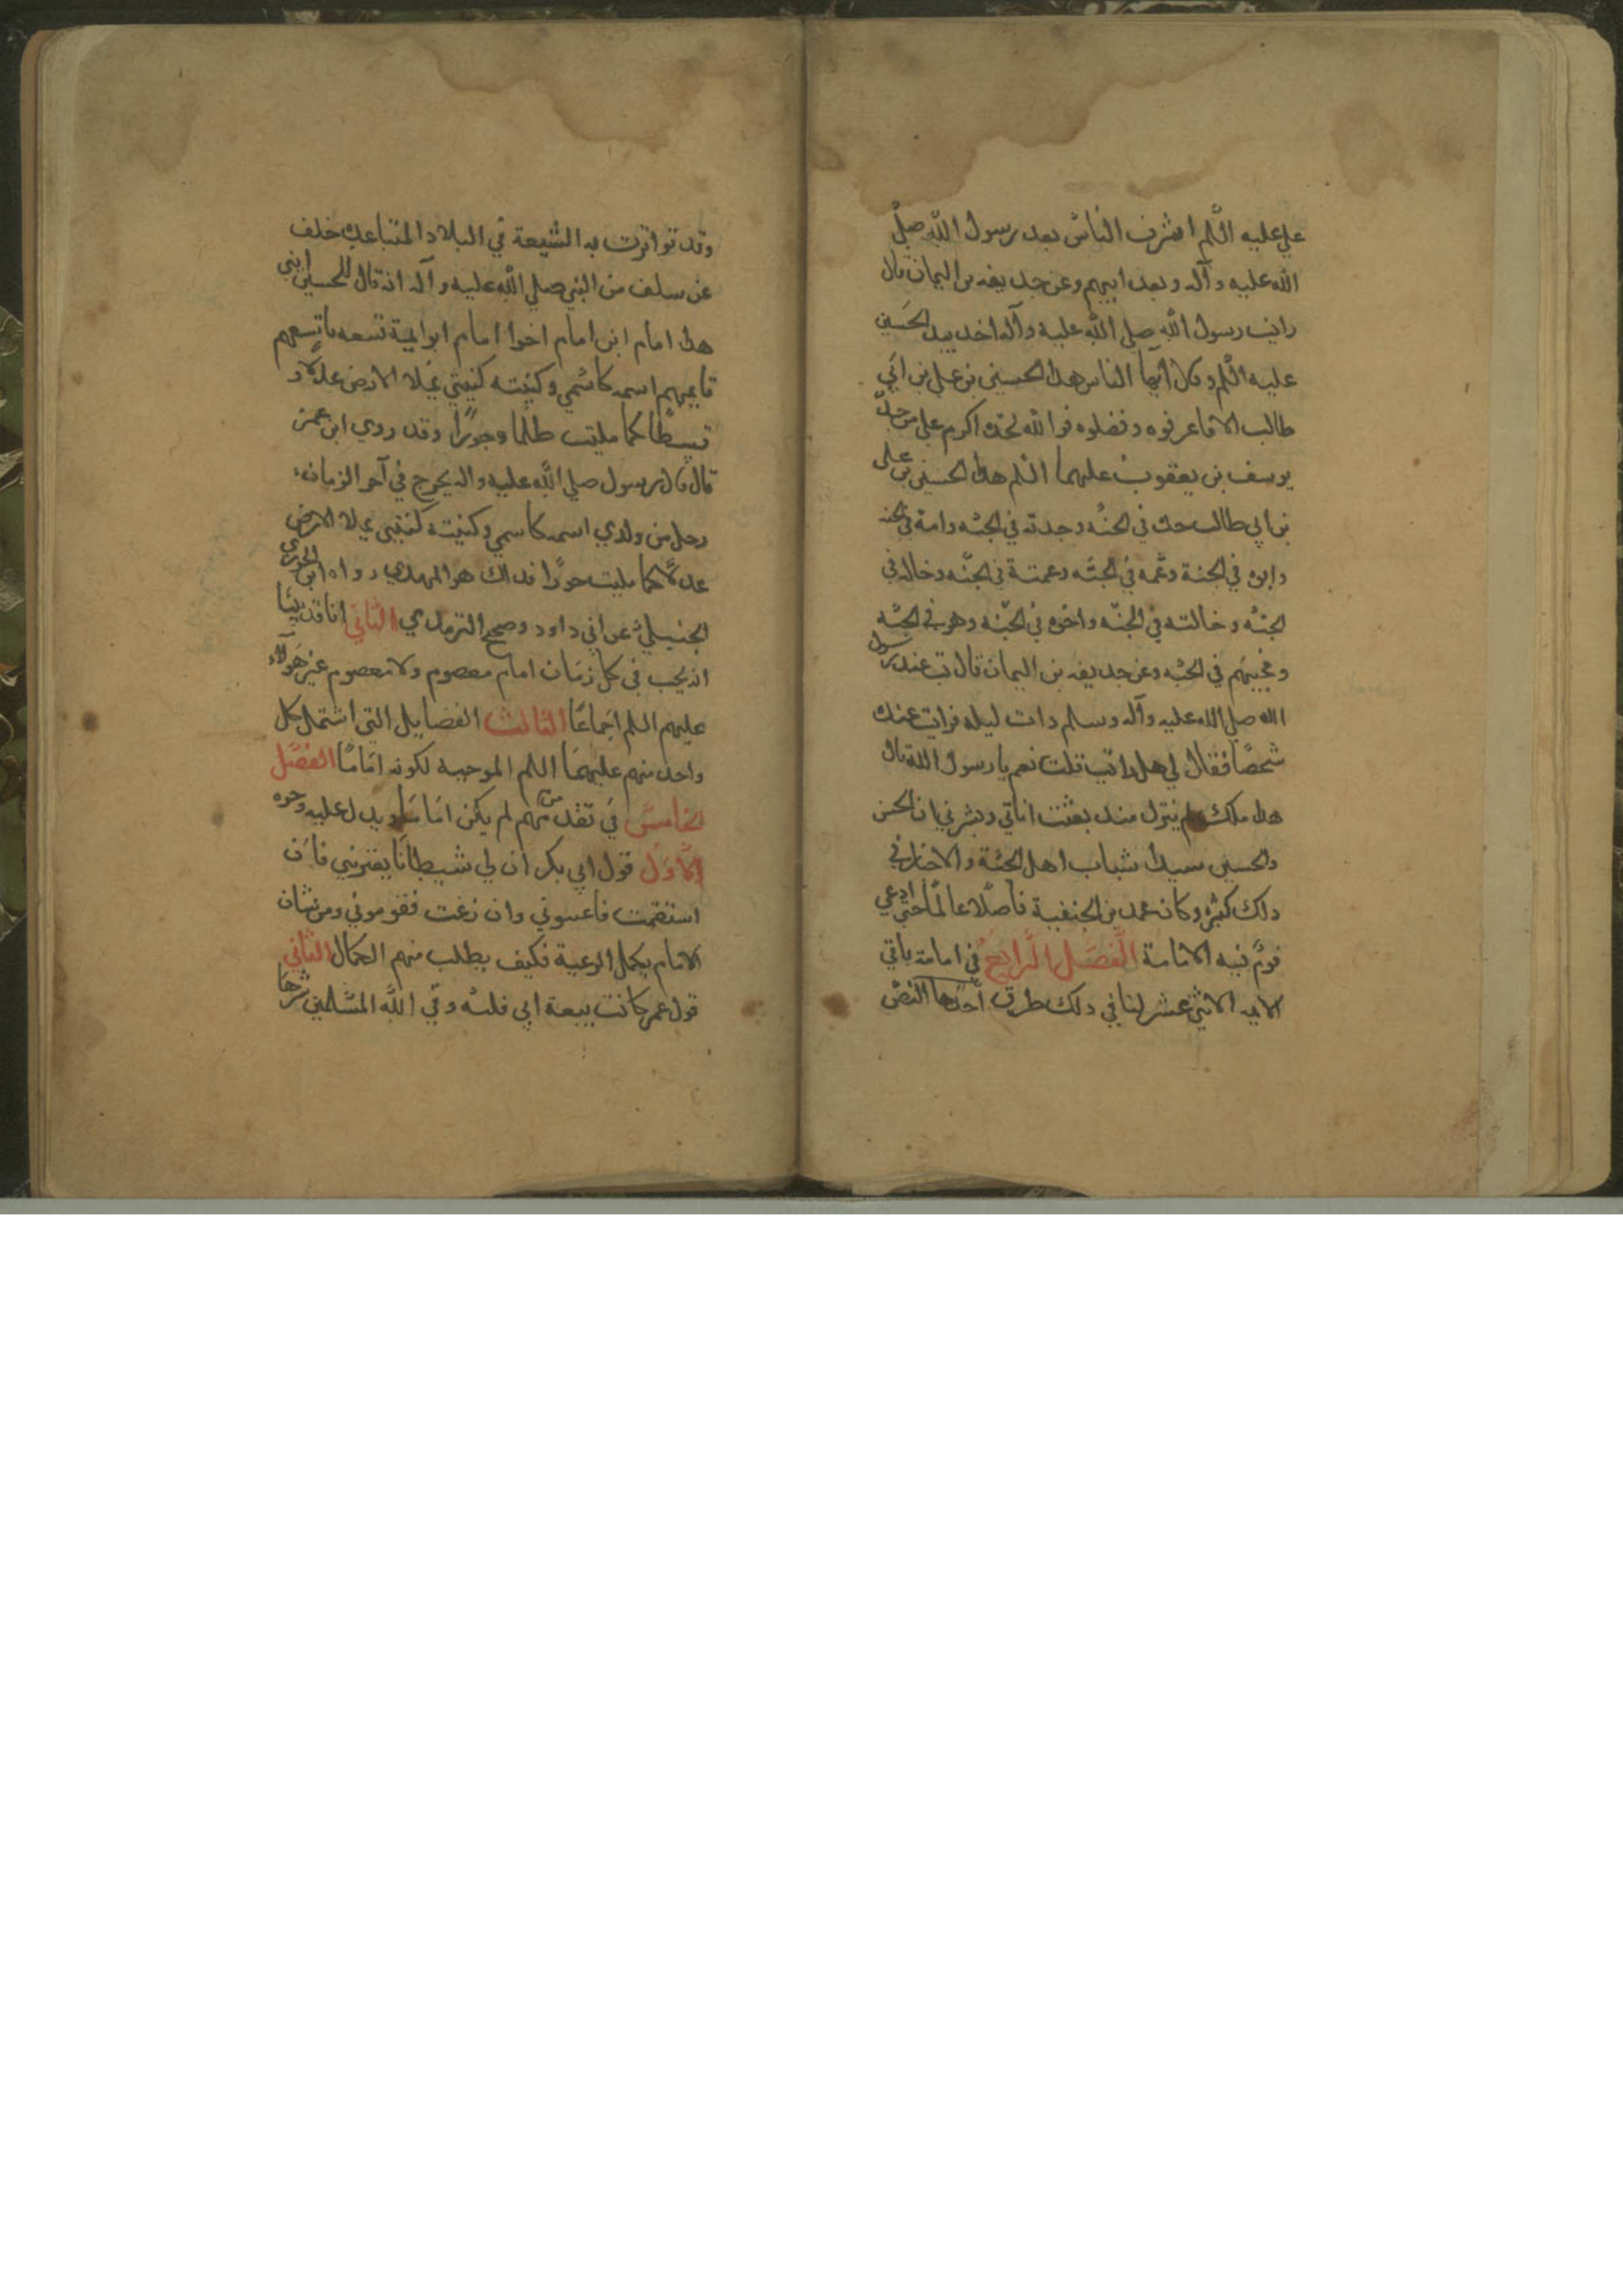 علي عليه السّلم اشرف النّاس بعد رسول الله صلّى
الله عليه وآله وبعد ابيهم وعن حديفه بن اليمان قال
رايت رسول الله صلي الله عليه وآله اخد بيد الحَسين
عليه السّلم وقال ايّها الناس هدا الحسين بن علي بن ابي
طالب الا فاعرفوه وفضلوه فوالله لجدّه اكرم علي من جدّ
يوسف بن يعقوب عليهما السّلم هدا الحسين بن على
بن ابي طالب جده في الجنّه وجدته في الجنّه وامه في الجنه
وابوه في الجنة وعّمه في الجنّه وعمتة في الجنّه وخاله في
الجنّه وخالته في الجنّه واخوه في الجنّه وهو في الجنّه
ومحبيهم في الجنّه وعن حديفه بن اليمان قال بت عند رسول
الله صلي الله عليه وآله وسلم دات ليله فرايت عنده
شخصًا فقال لي هل رايت قلت نعم يا رسول الله قال
هدا ملك لم ينزل مند بعثت اتاني وبشرني ان الحسن
والحسين سيدا شباب اهل الجنّة والاخبار في
دلك كثيره وكان محمد بن الحنفية فاضلا عالمًا حتى ادعي
قومٌ فيه الامامة الفصَل الرّابع في امامة باقي
الايمه الاثني عشر لنا في دلك طرق احدها النصّ
وقد تواترت به الشّيعة في البلاد المتباعده خلف
عن سلف من النبي صلي الله عليه وآله انه قال للحسين ابني
هدا امام ابن امام اخوا امام ابو ايمة تسعه تاسعهم
قايمهم اسمه كاسْمي وكنيته كنيتي يملا الارض عدلا و
قسطًا كما مليت ظلما وجورًا وقد روي ابن عمر
قال قال رسول صلي الله عليه واله يخرج في آخر الزمان
رجل من ولدي اسمه كاسمي وكنيته كنيتي يملا الارض
عدلاً كما مليت جورًا فدالك هو المهدي رواه ابن الجوزي
الحنبيليّ عن ابي داود وصحيح الترمدي الثّاني انا قد بيّنا
انه يجب في كل زمَان امام معصوم ولا معصوم غير هَولآء
عليهم السلم اجماعًا الثالث الفضايل التي اشتمل كل
واحد منهم عليهمَا السلم الموجبه لكونه امَامًا الفصَل
الخامسَ في تقد من مهم لم يكن امَامَا ويدل عليه وجوه
الاّول قول ابي بكر ان لي شيطانَا يعتريني فان
استقمت فاعينوني وان زغت فقوموني ومن شان
الامام يكمل الرعية فكيف يطلب منهم الكمال الثاني
قول عمر كانت بيعة ابي فلته وقي الله المسّلمين شرهَا